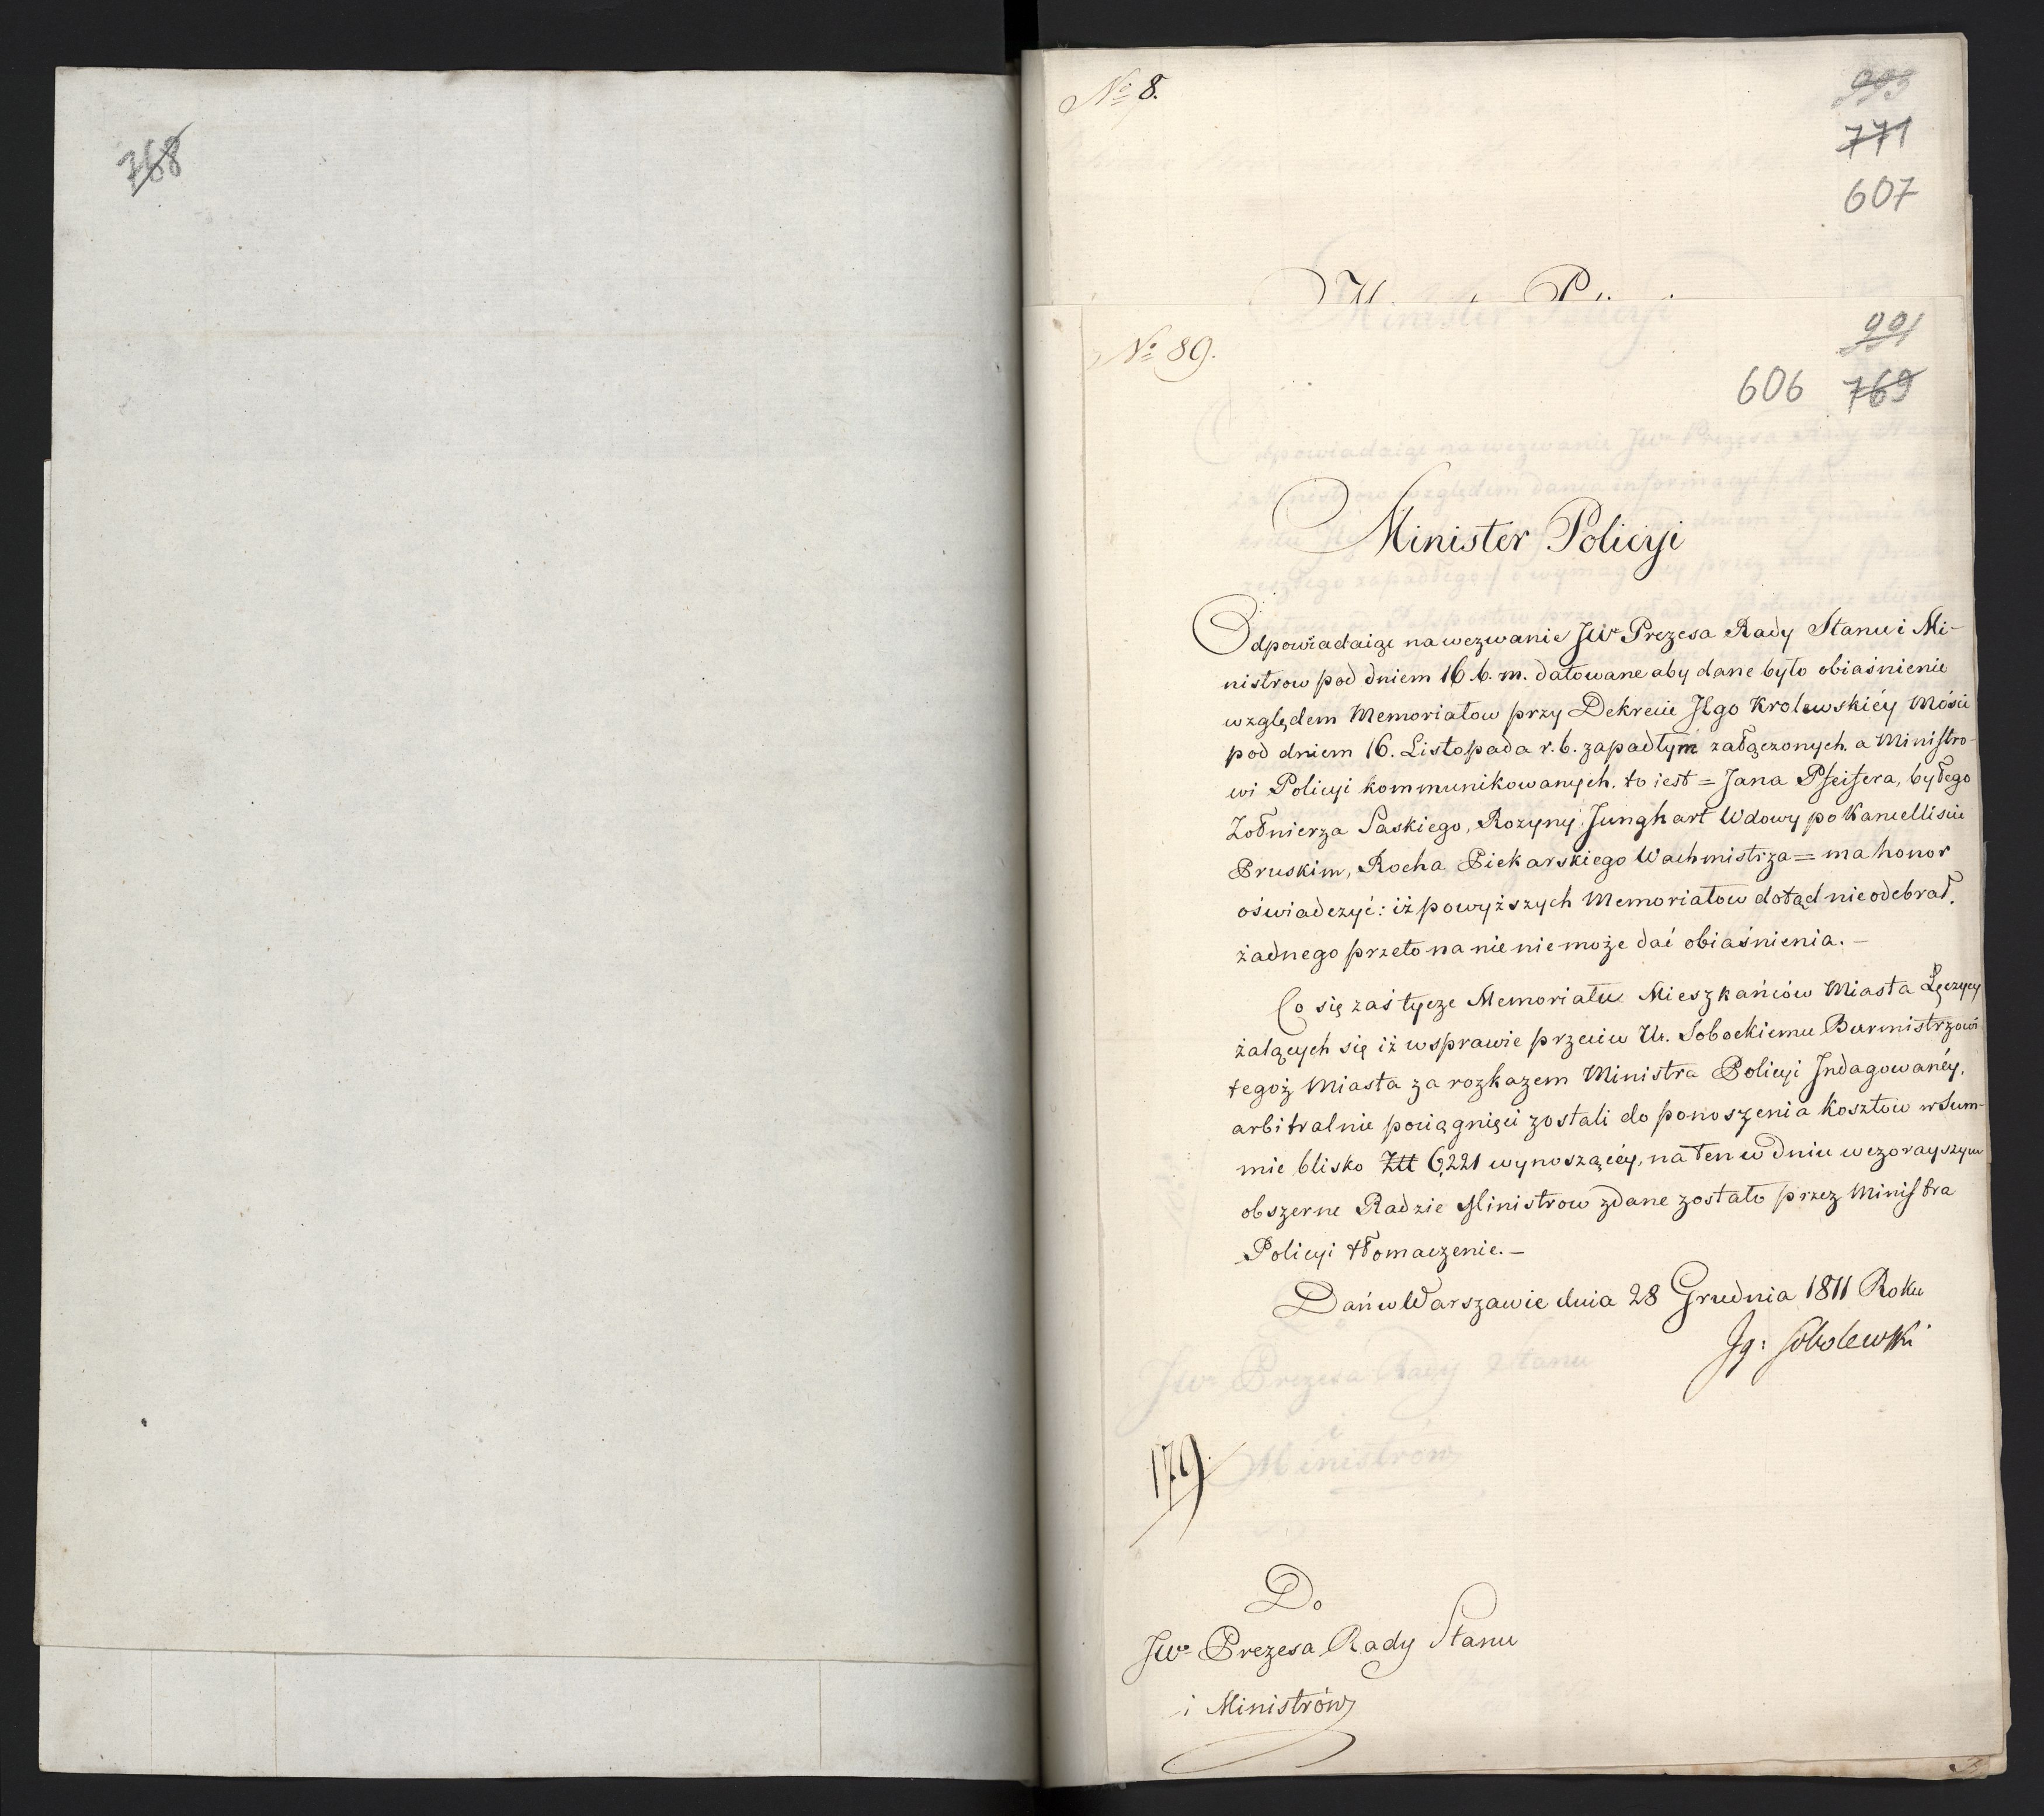 768
No 8.
993
771
607
Minister Policyi
No 89.
991
606 769
Minister Policyi
Odpowiadaiąc na wezwanie JW. Prezesa Rady Stanu i Mi-
nistrow pod dniem 16. b. m. datowane aby dane było obiaśnienie
względem Memoriałow przy Dekrecie JEgo Krolewskiéy Mości
pod dniem 16. Listopada r. b. zapadłym załączonych. a Ministro-
wi Policyi kommunikowanych. to iest = Jana Pfeifera, byłego
Żołnierza Saskiego, Rozyny Junghart Wdowy po Kancellisie
Pruskim, Rocha Piekarskiego Wachmistrza = ma honor
oświadczyć: iż powyższych Memoriałow dotąd nie odebrał.
żadnego przeto na nie nie może dać obiaśnienia. —
Co się zaś tycze Memoriału Mieszkańców Miasta Łęczycy
żalących się iż w sprawie przeciw Ur. Sobockiemu Burmistrzowi
tegoż Miasta za rozkazem Ministra Policyi Indagowanéy,
arbitralnie pociągnięci zostali do ponoszenia Kosztow w Sum-
mie blisko Złt 6,221 wynoszącéy, na ten w dniu wczorayszym
obszerne Radzie Ministrow zdane zostało przez Ministra
Policyi tłomaczenie. —
Dań w Warszawie dnia 28 Grudnia 1811 Roku
Ig: Sobolewski
179
Do
JW. Prezesa Rady Stanu
i Ministrów